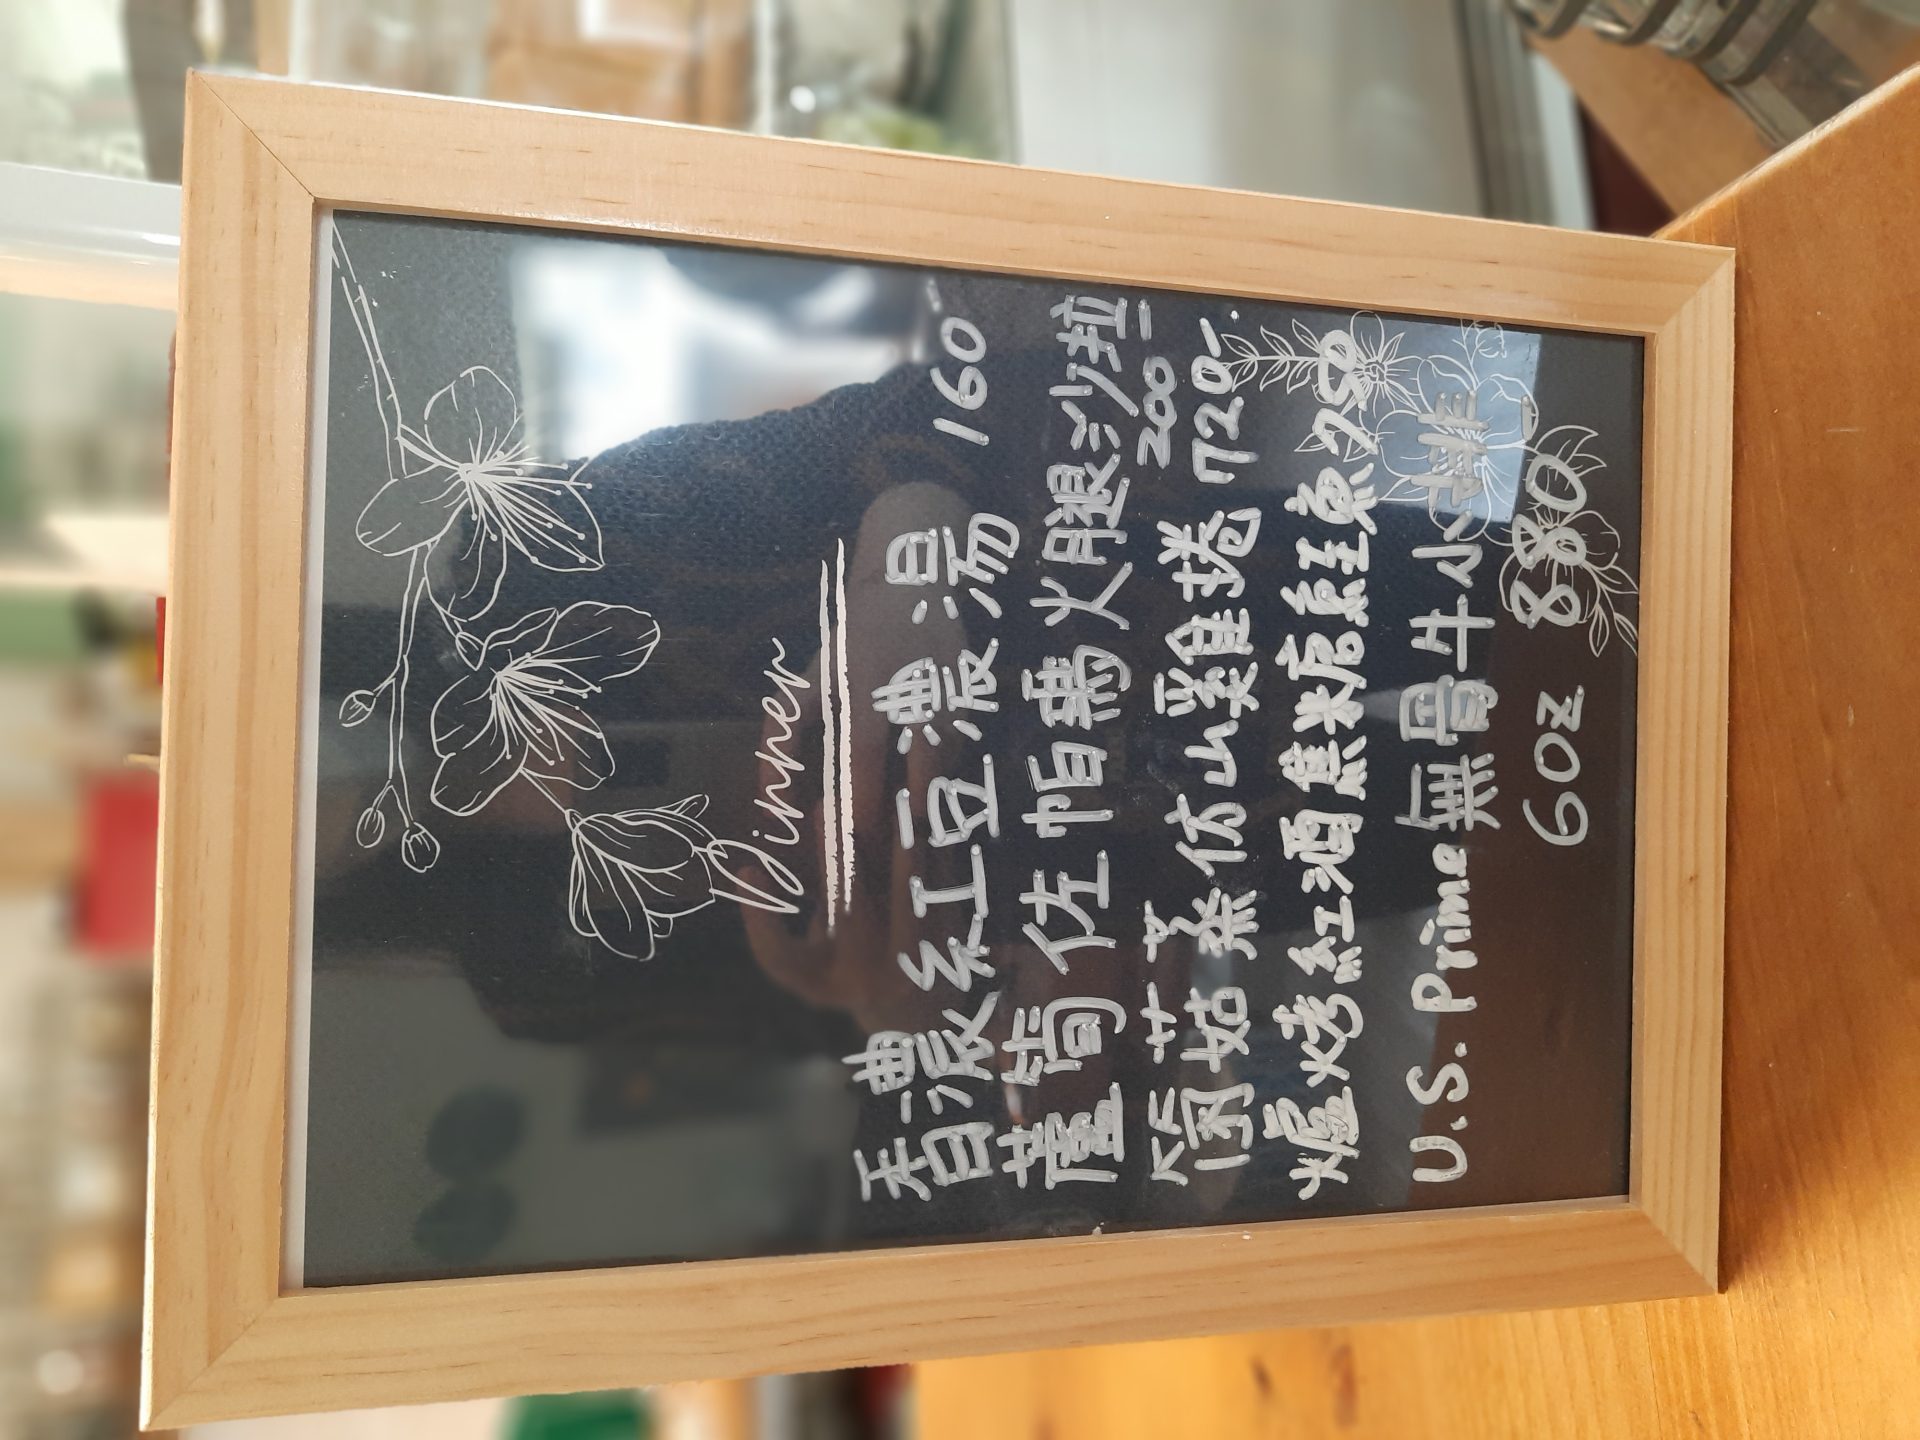 Dinner
香濃紅豆濃湯 160-
蘆筍佐帕瑪火腿沙拉
200-
筋菇蒸仿山雞捲 720-
爐烤紅酒焦糖鮭魚 750
U.S. Prime 無骨牛小排
6oz 880-